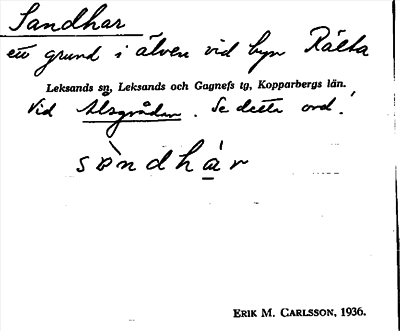 Sandhar
ett grund i älven vid byn Rälta
Leksands sn, Leksands och Gagnefs tg, Kopparbergs län.
Vid Alsgrådan. Se detta ord!
sàndhár
ERIK M. CARLSSON, 1936.